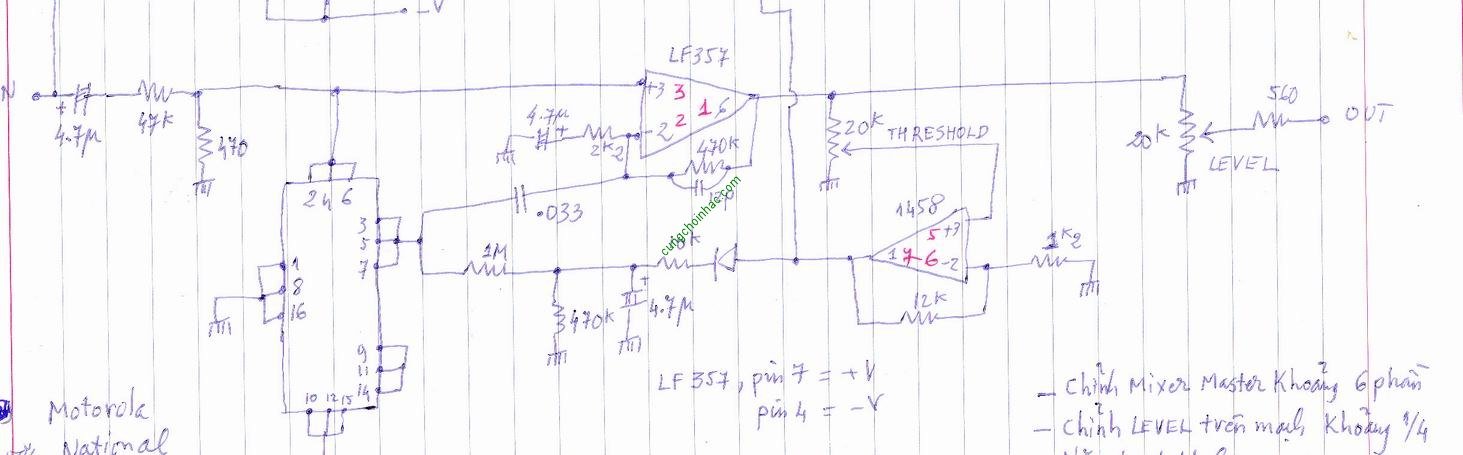 -V
LF357
N
+
4.7µ
47K
470
4.7µ
+
2K2
+3
3
2
-2
1
6
470K
20K
THRESHOLD
20K
LEVEL
560
OUT
2 4 6
3
5
7
1
8
16
9
11
14
10 12 15
.033
1M
470K
+
4.7µ
cungchoinhac.com
1458
5
+3
1
7
6
-2
1K2
12K
LF357, pin 7 = +V
pin 4 = -V
Motorola
National
- Chỉnh Mixer Master Khoảng 6 phần
- Chỉnh LEVEL trên mạch Khoảng 1/4